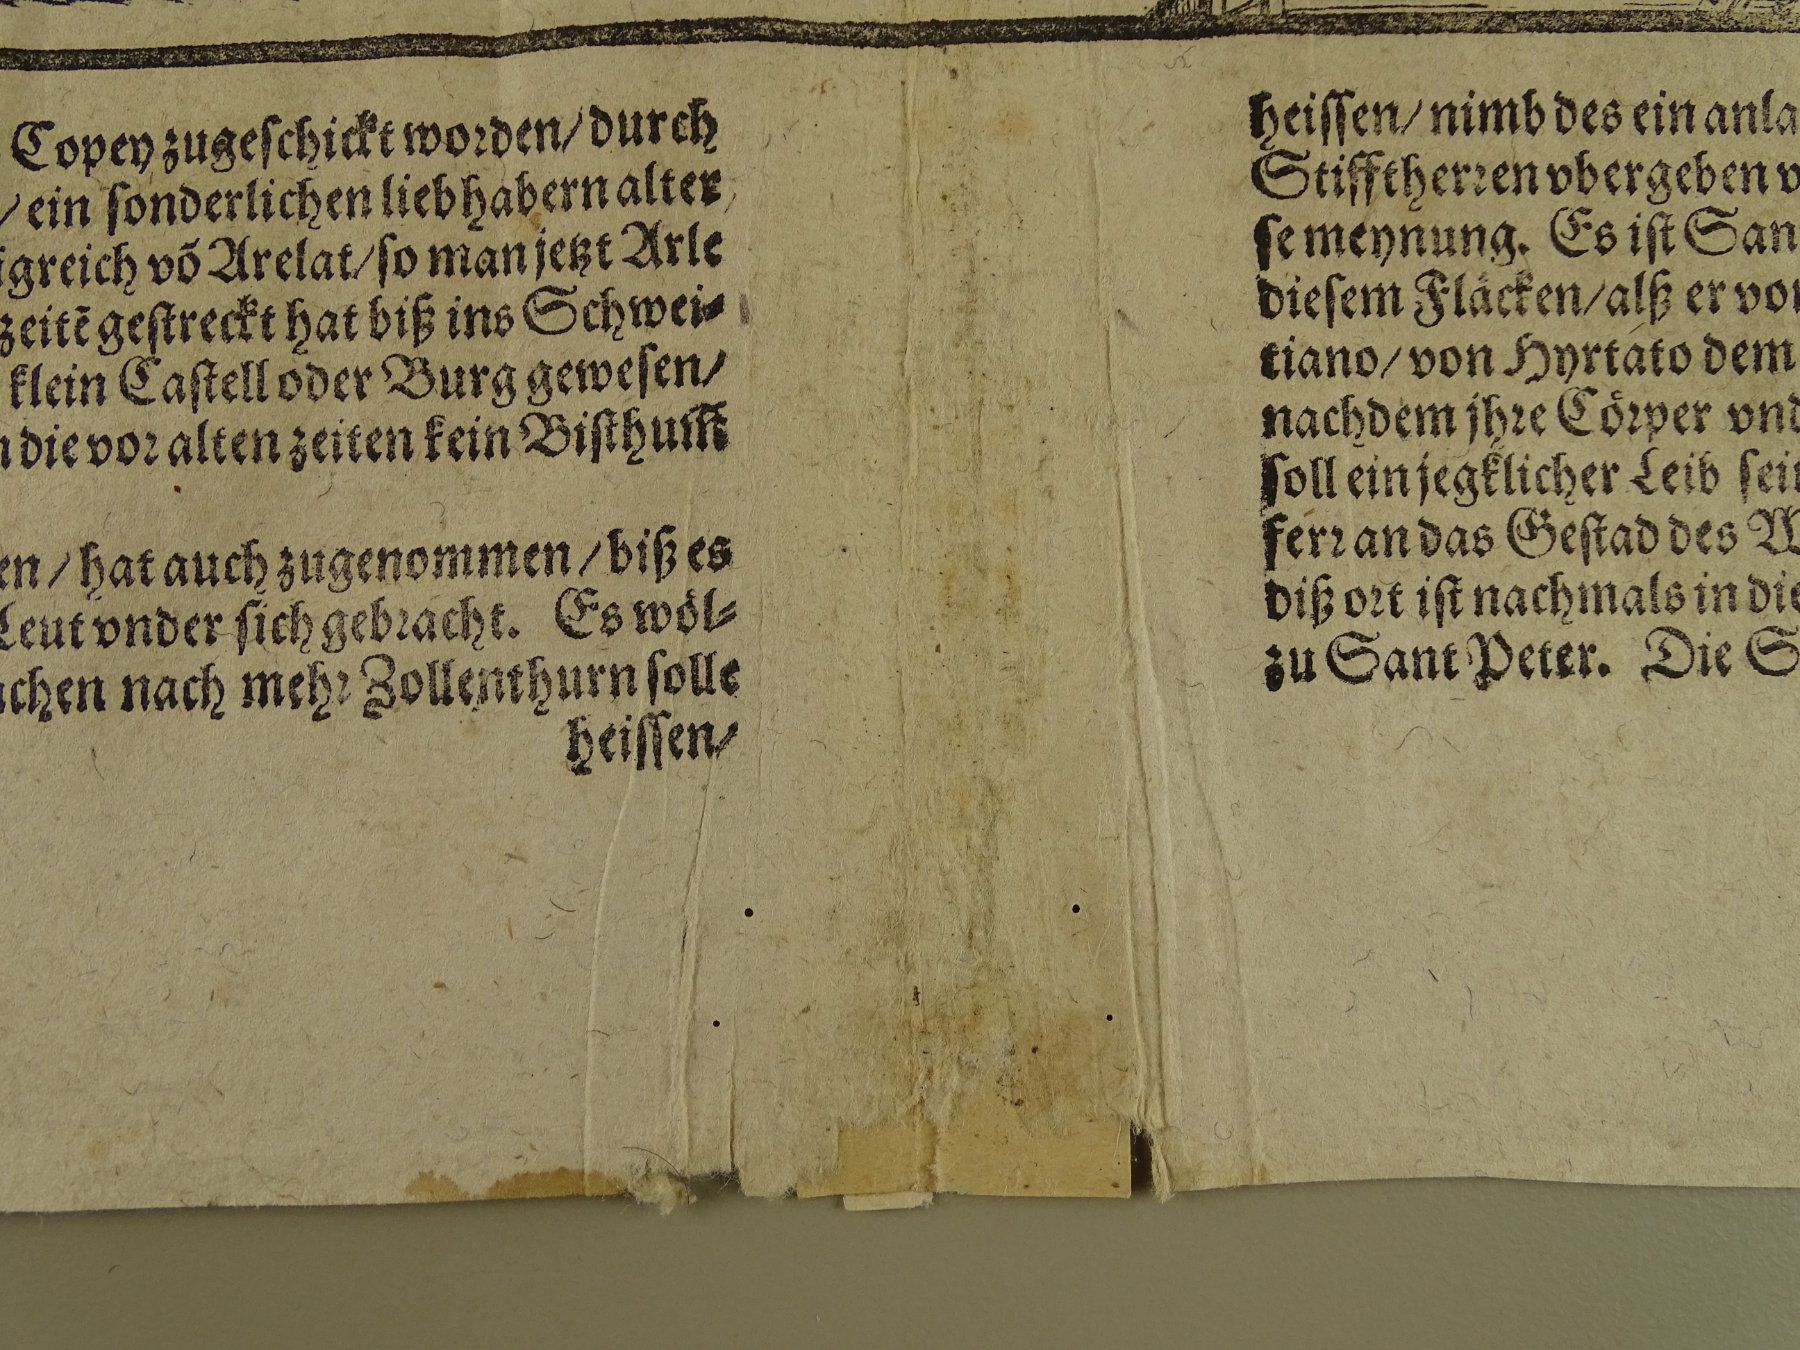 Copey zugeschickt worden/ durch
/ ein sonderlichen liebhabern alter
igreich võ Arelat/ so man jetzt Arle
zeitẽ gestreckt hat biß ins Schwei-
klein Castell oder Burg gewesen/
die vor alten zeiten kein Bisthum̃
en / hat auch zugenommen / biß es
Leut vnder sich gebracht. Es wöl-
achen nach mehr Zollenthurn solle
heissen/
heissen/ nimb des ein anla
Stifftherren vbergeben v
se meynung. Es ist San
diesem Fläcken/ alß er von
tiano/ von Hyrtáto dem
nachdem jhre Cörper vnd
soll ein jegklicher Leib sei
ferr an das Gestad des
diß ort ist nachmals in die
zu Sant Peter. Die S